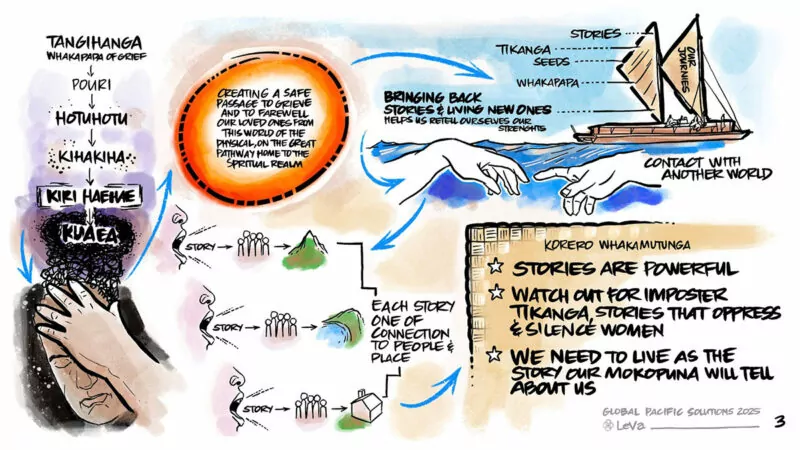 TANGIHANGA
WHAKAPAPA OF GRIEF
POURI
HOTUHOTU
KIHAKIHA
KIRI HAEHAE
KUAEA
CREATING A SAFE
PASSAGE TO GRIEVE
AND TO FAREWELL
OUR LOVED ONES FROM
THIS WORLD OF THE
PHYSICAL, ON THE GREAT
PATHWAY HOME TO THE
SPIRITUAL REALM
STORIES
TIKANGA
SEEDS
WHAKAPAPA
OUR
JOURNIES
BRINGING BACK
STORIES & LIVING NEW ONES
HELPS US RETELL OURSELVES OUR
STRENGHTS
CONTACT WITH
ANOTHER WORLD
STORY
STORY
STORY
EACH STORY
ONE OF
CONNECTION
TO PEOPLE &
PLACE
KORERO WHAKAMUTUNGA
STORIES ARE POWERFUL
WATCH OUT FOR IMPOSTER
TIKANGA, STORIES THAT OPPRESS
& SILENCE WOMEN
WE NEED TO LIVE AS THE
STORY OUR MOKOPUNA WILL TELL
ABOUT US
GLOBAL PACIFIC SOLUTIONS 2025
LeVa
3